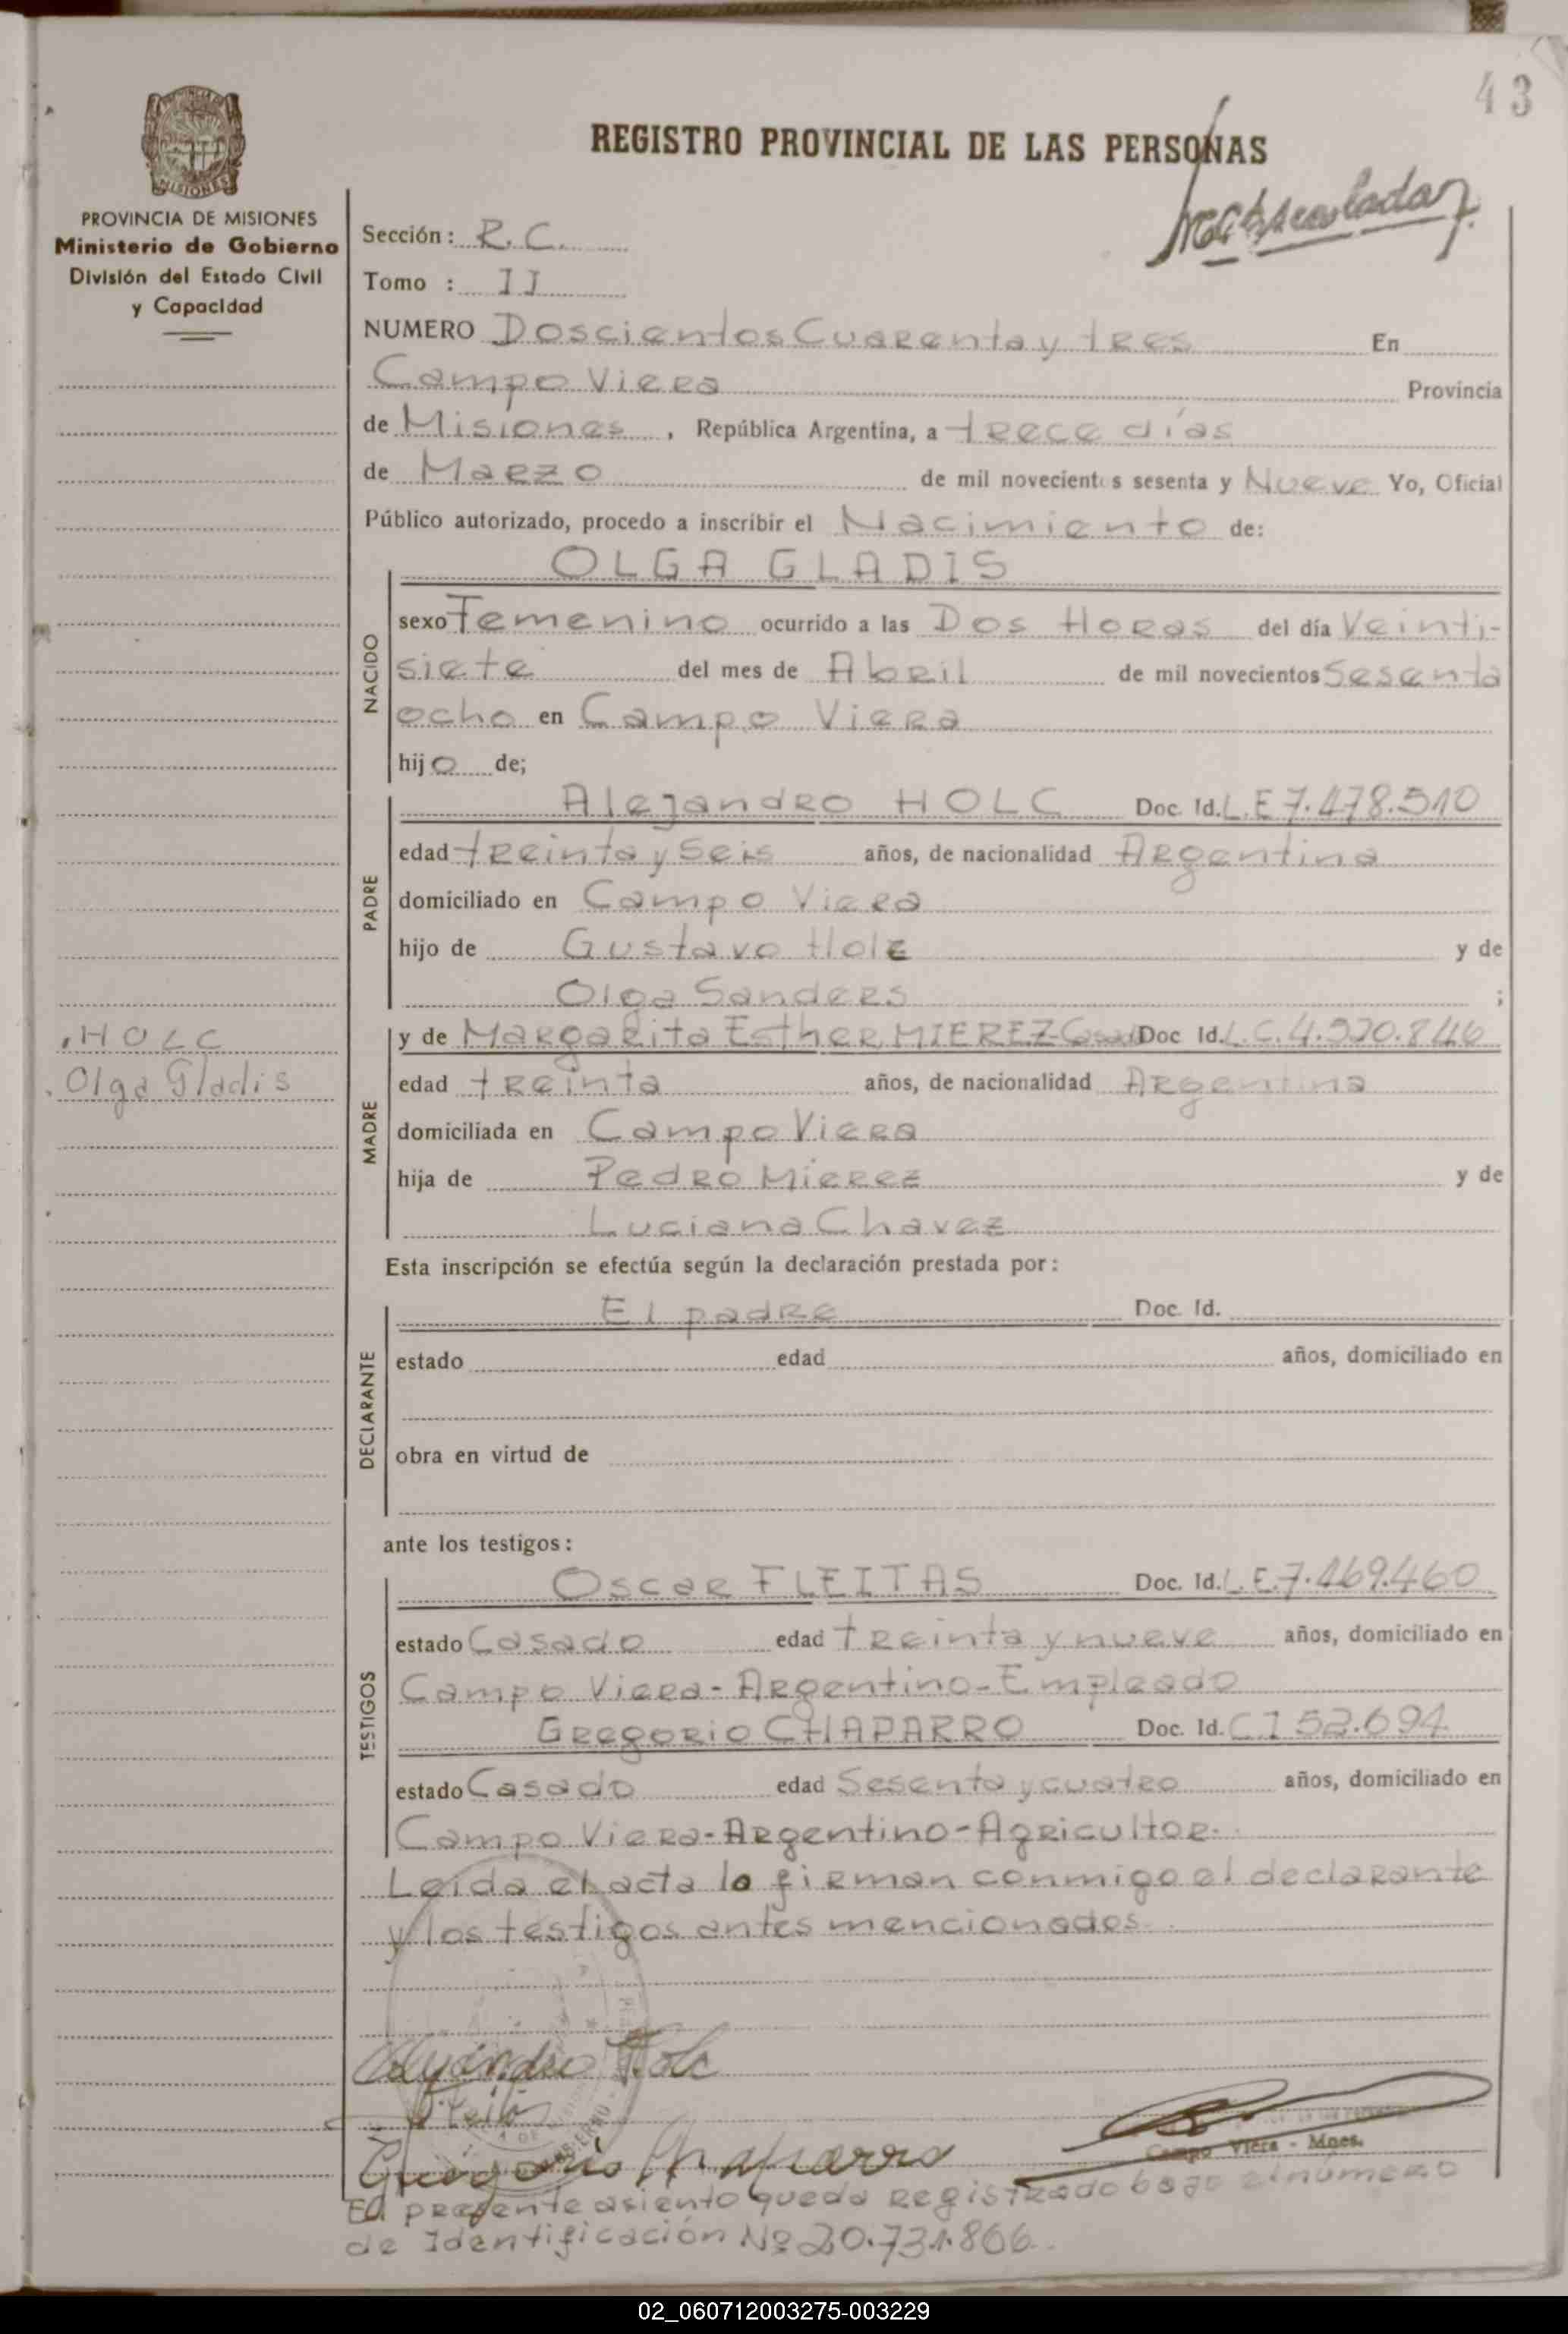 43
REGISTRO PROVINCIAL DE LAS PERSONAS
PROVINCIA DE MISIONES
Ministerio de Gobierno
División del Estado Civil
y Capacidad
Matriculada
Sección: R. C.
Tomo : II
NUMERO Doscientos Cuarenta y tres En
Campo Viera Provincia
de Misiones, República Argentina, a trece días
de Marzo de mil novecientos sesenta y Nueve Yo, Oficial
Público autorizado, procedo a inscribir el Nacimiento de:
OLGA GLADIS
NACIDO
sexo Femenino ocurrido a las Dos Horas del día Veinti-
siete del mes de Abril de mil novecientos Sesenta
ocho en Campo Viera
hijo de;
Alejandro HOLC Doc. Id. L.E 7.478.510
PADRE
edad treinta y Seis años, de nacionalidad Argentina
domiciliado en Campo Viera
hijo de Gustavo Holc y de
Olga Sanders ;
HOLC
Olga Gladis
y de Margarita Esther MIEREZ-Casada Doc Id. L.C. 4.920.846
MADRE
edad treinta años, de nacionalidad Argentina
domiciliada en Campo Viera
hija de Pedro Mierez y de
Luciana Chavez
Esta inscripción se efectúa según la declaración prestada por:
El padre Doc. Id.
DECLARANTE
estado edad años, domiciliado en
obra en virtud de
ante los testigos:
Oscar FLEITAS Doc. Id. L.E. 7.469.460
TESTIGOS
estado Casado edad treinta y nueve años, domiciliado en
Campo Viera - Argentino - Empleado
Gregorio CHAPARRO Doc. Id. C.I 52.694
estado Casado edad Sesenta y cuatro años, domiciliado en
Campo Viera - Argentino - Agricultor.
Leida el acta la firman conmigo el declarante
y los testigos antes mencionados.
Alejandro Holc
Fleitas
Gregorio Chaparro
Campo Viera - Mnes.
El presente asiento queda registrado bajo el número
de Identificación Nº 20.731.866.
02_060712003275-003229